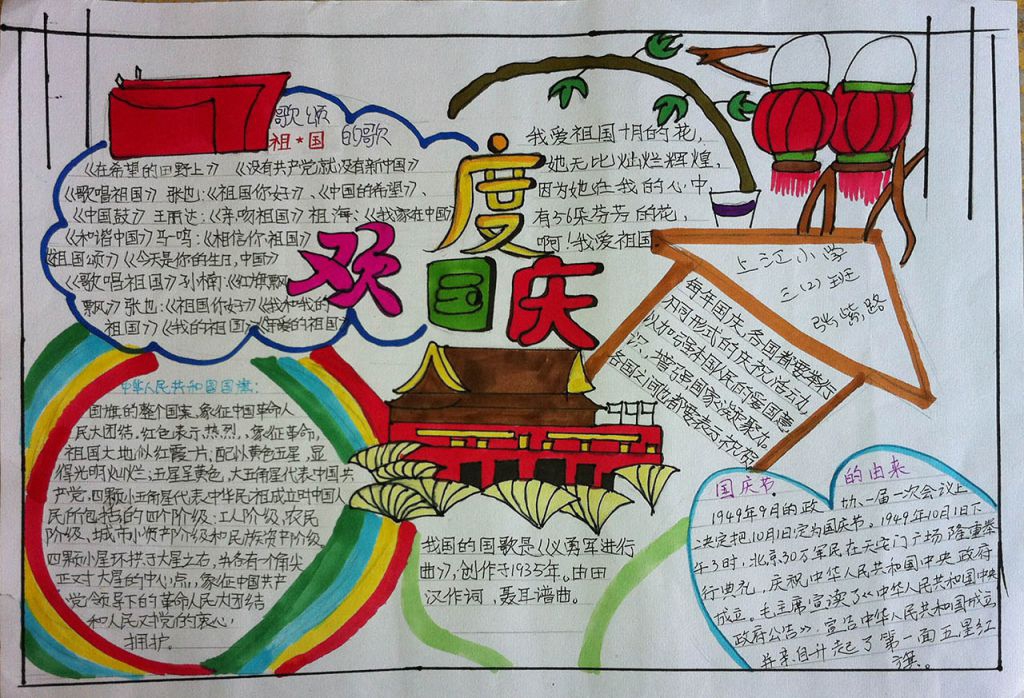 歌颂
祖★国的歌
《在希望的田野上》《没有共产党就没有新中国》
《歌唱祖国》张也:《祖国你好》、《中国的希望》、
《中国鼓》王丽达:《亲吻祖国》祖海:《我家在中国》
《和谐中国》马鸣:《相信你祖国》
《祖国颂》《今天是你的生日,中国》
《歌唱祖国》《红旗飘
飘》张也:《祖国你好》《我和我的
祖国》《我的祖国》《亲爱的祖国》
欢度国庆
我爱祖国十月的花,
她无比灿烂辉煌,
因为她在我的心中,
有56朵芬芳的花,
啊!我爱祖国
上江小学
三(2)班
张紫路
每年国庆,各国都要举行
不同形式的庆祝活动,
以加强本国人民的爱国意
识,增强国家凝聚力。
各国之间也都要表示祝贺
中华人民共和国国旗:
国旗的整个图案,象征中国革命人
民大团结。红色表示热烈,象征革命,
祖国大地似红霞一片;配以黄色五星,显
得光明灿烂;五星呈黄色,大五角星代表中国共
产党,四颗小五角星代表中华民祖成立时中国人
民所包括的四个阶级:工人阶级,农民
阶级、城市小资产阶级和民族资产阶级
四颗小星环拱于大星之右,并各有一个角尖
正对大星的中心点,象征中国共产
党领导下的革命人民大团结
和人民对党的衷心
拥护。
我国的国歌是《义勇军进行
曲》,创作于1935年。由田
汉作词,聂耳谱曲。
国庆节的由来
1949年9月的政协一届一次会议上
决定把10月1日定为国庆节。1949年10月1日下
午3时,北京30万军民在天安门广场隆重举
行典礼,庆祝中华人民共和国中央政府
成立。毛主席宣读了《中华人民共和国中央
政府公告》,宣告中华人民共和国成立
并亲自升起了第一面五星红
旗。